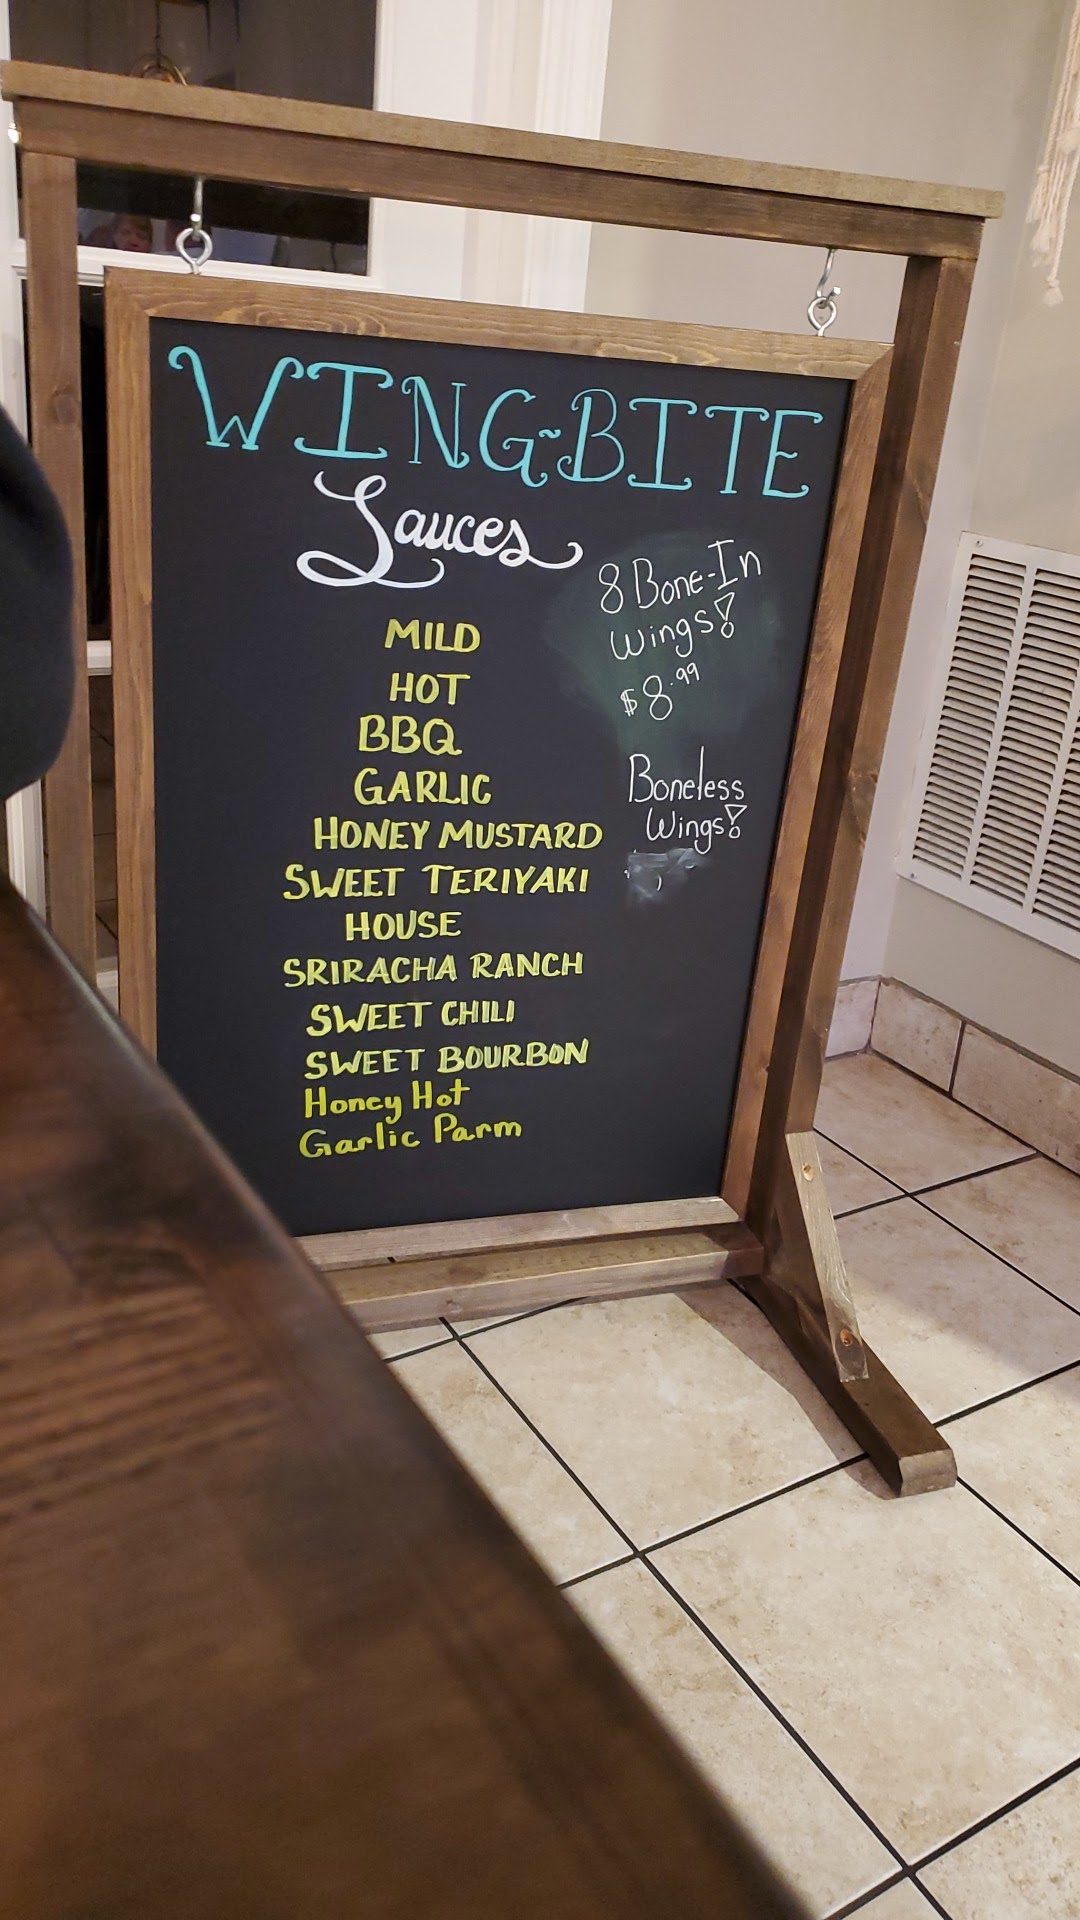 WING~BITE
Sauces
MILD
HOT
BBQ
GARLIC
HONEY MUSTARD
SWEET TERIYAKI
HOUSE
SRIRACHA RANCH
SWEET CHILI
SWEET BOURBON
Honey Hot
Garlic Parm
8 Bone-In
Wings!
$8.99
Boneless
Wings!